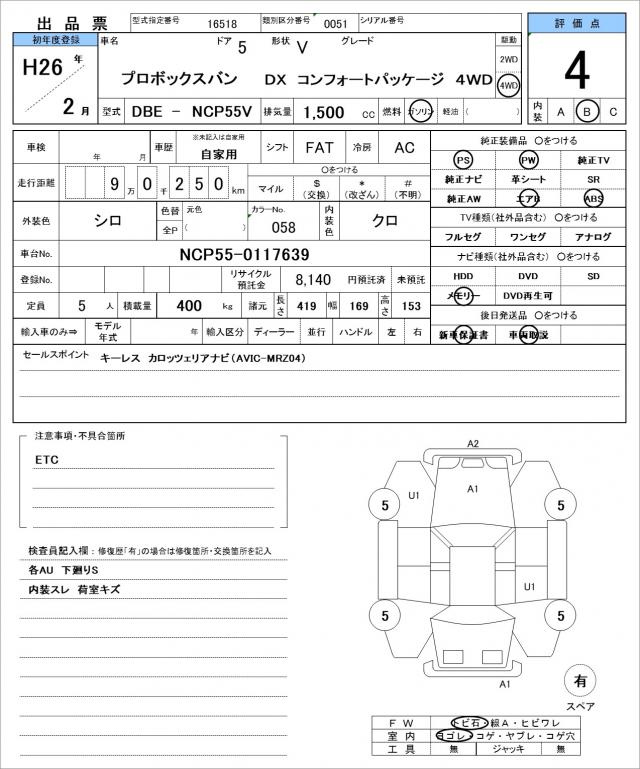 出 品 票 型式指定番号 16518 類別区分番号 0051 シリアル番号 評 価 点
初年度登録 車名 ドア 5 形状 V グレード 駆動
H26 年 プロボックスバン DX コンフォートパッケージ 4WD 2WD 4
2 月 4WD
型式 DBE - NCP55V 排気量 1,500 cc 燃料 ガソリン 軽油 ( ) 内装 A B C
車検 年 月 車歴 ※未記入は自家用 自家用 シフト FAT 冷房 AC 純正装備品 ○をつける
PS PW 純正TV
走行距離 9 万 0 千 2 5 0 km ○をつける
マイル $ (交換) * (改ざん) # (不明)
純正ナビ 革シート SR
純正AW エアB ABS
外装色 シロ 色替 元色 全P ( ) カラーNo. 058 内装色 クロ
TV種類(社外品含む) ○をつける
フルセグ ワンセグ アナログ
車台No. NCP55-0117639 ナビ種類(社外品含む) ○をつける
登録No. リサイクル預託金 8,140 円預託済 未預託 HDD DVD SD
定員 5 人 積載量 400 kg 諸元 長さ 419 幅 169 高さ 153 メモリー DVD再生可
後日発送品 ○をつける
輸入車のみ⇒ モデル年式 年 輸入区分 ディーラー 並行 ハンドル 左 右 新車保証書 車両取説
セールスポイント キーレス カロッツェリアナビ(AVIC-MRZ04)
注意事項・不具合箇所
ETC
検査員記入欄：修復歴「有」の場合は修復箇所・交換箇所を記入
各AU 下廻りS
内装スレ 荷室キズ
A2
U1 A1
5 5
U1
5 5
A1
有
スペア
F W トビ石・線A・ヒビワレ
室 内 ヨゴレ・コゲ・ヤブレ・コゲ穴
工 具 無 ジャッキ 無